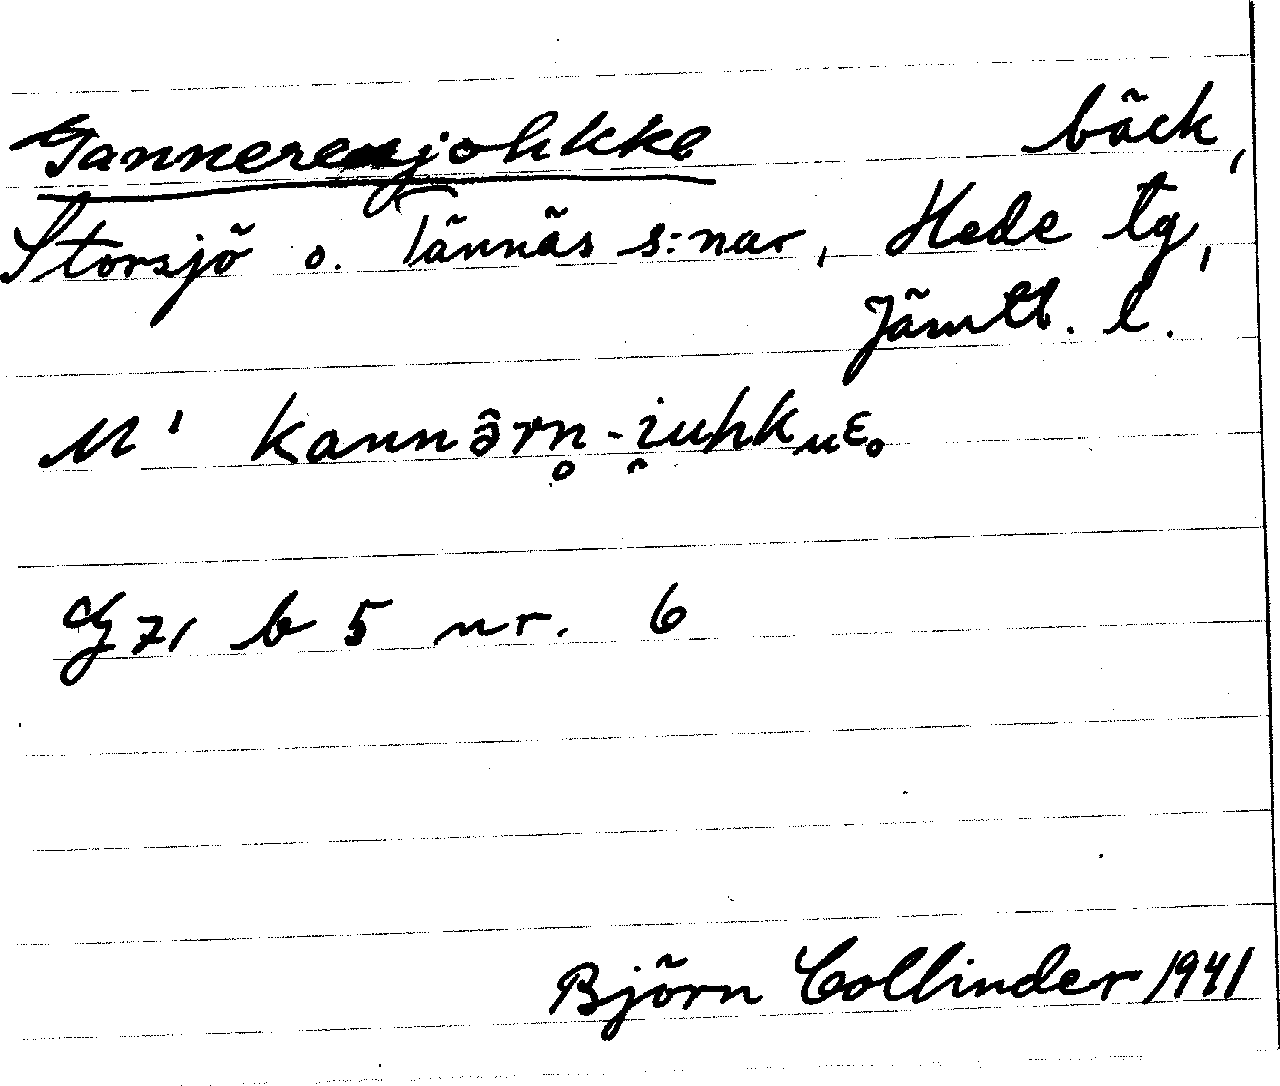 Gannerenjohkke bäck,
Storsjö o. Tännäs s:nar, Hede tg,
Jämtl. l.
G 71 b 5 nr. 6
Björn Collinder 1941